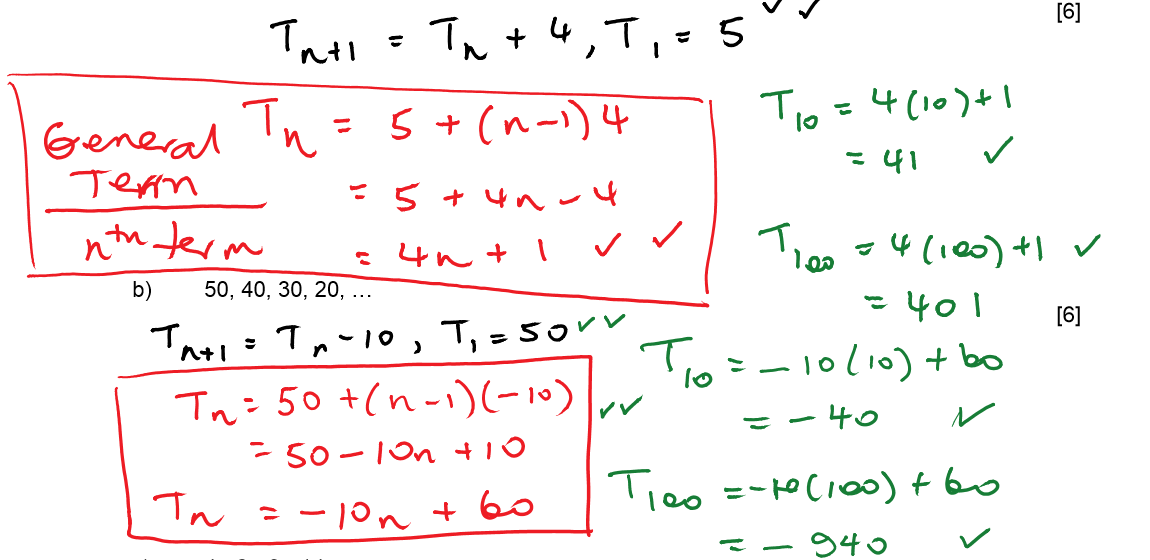 T_{n+1} = T_n + 4 , T_1 = 5 ✓✓
[6]
General Term
nth term
T_n = 5 + (n-1)4
= 5 + 4n - 4
= 4n + 1 ✓ ✓
T_10 = 4(10)+1
= 41 ✓
T_100 = 4(100)+1 ✓
= 401
b) 50, 40, 30, 20, …
[6]
T_{n+1} = T_n - 10 , T_1 = 50 ✓✓
T_n = 50 + (n-1)(-10) ✓✓
= 50 - 10n + 10
T_n = -10n + 60
T_10 = -10(10) + 60
= -40 ✓
T_100 = -10(100) + 60
= -940 ✓